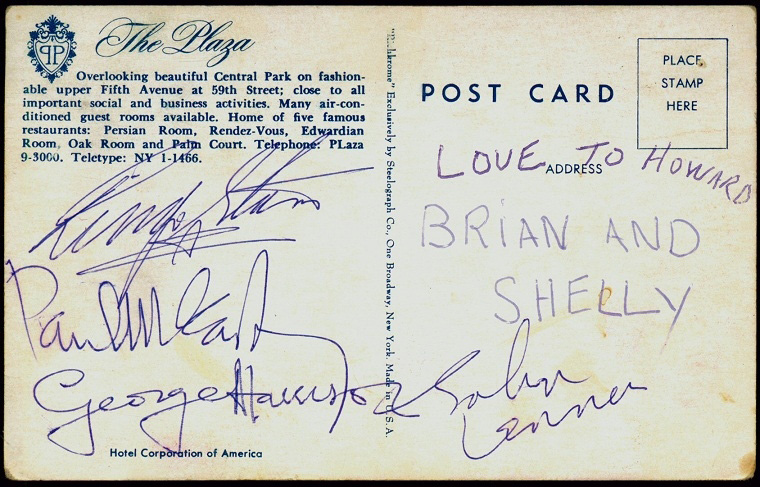 PP
The Plaza
Overlooking beautiful Central Park on fashion-
able upper Fifth Avenue at 59th Street; close to all
important social and business activities. Many air-con-
ditioned guest rooms available. Home of five famous
restaurants: Persian Room, Rendez-Vous, Edwardian
Room, Oak Room and Palm Court. Telephone: PLaza
9-3000. Teletype: NY 1-1466.
Ringo Starr
Paul McCartney
George Harrison
Hotel Corporation of America
chrome" Exclusively by Steelograph Co., One Broadway, New York. Made in U.S.A.
POST CARD
PLACE
STAMP
HERE
ADDRESS
LOVE TO HOWARD
BRIAN AND
SHELLY
John
Lennon